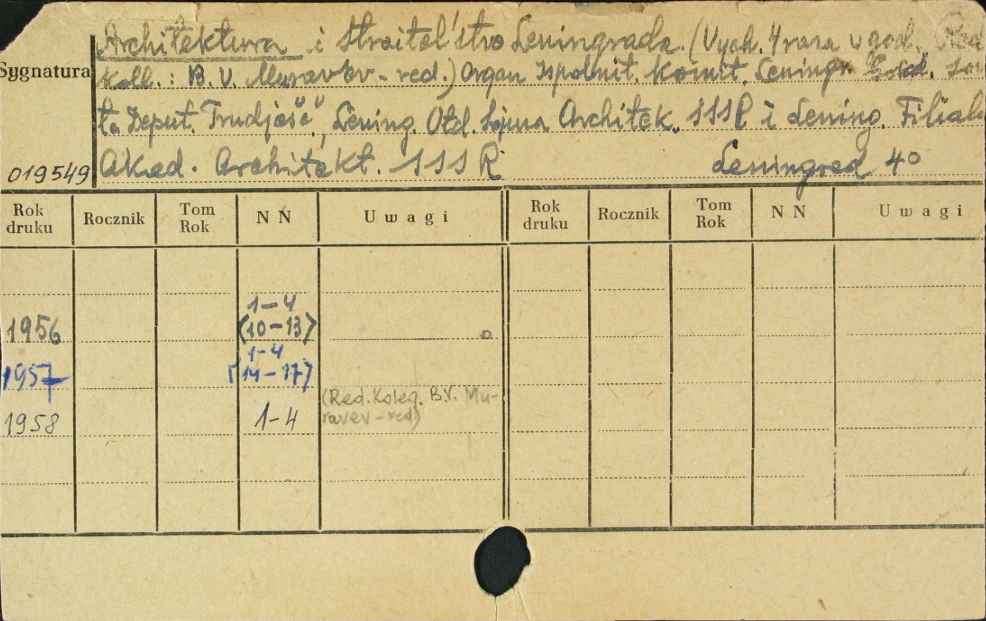 Architektura i Stroitel'stvo Leningrada. (Vych. 4 raza v god. Red.
Sygnatura
koll.: B. V. Murav'ev - red.) Organ Ispolnit. Komit. Leningr. Gorod. Sov
ta Deput. Trudjašč., Lening. Otd. Sojuza Architek. SSSR i Lening. Filiala
019549
Akad. Architekt. SSSR Leningrad 4°
Rok druku Rocznik Tom Rok NN Uwagi Rok druku Rocznik Tom Rok NN Uwagi
1-4
1956 (10-13)
1-4
1957 (14-17)
(Red. Koleg. B.V. Mu-
1958 1-4 ravev-red)